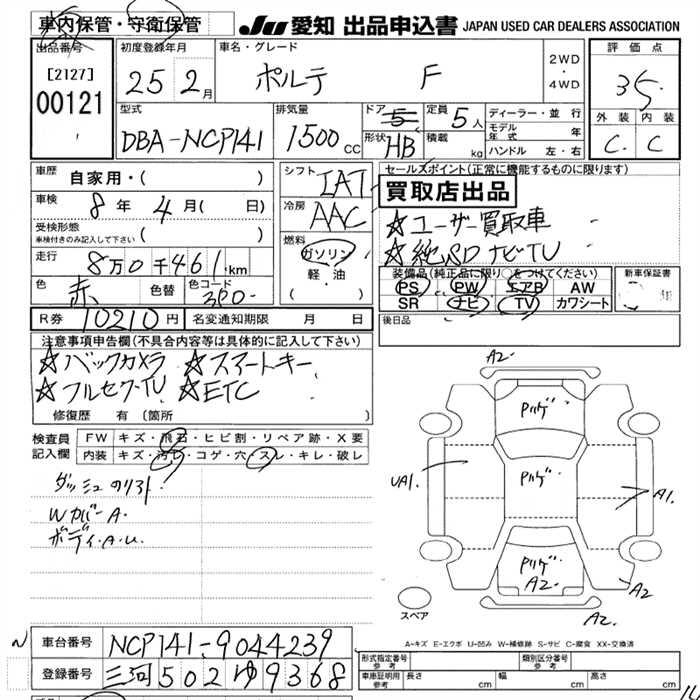 車内保管・守衛保管
JU 愛知 出品申込書 JAPAN USED CAR DEALERS ASSOCIATION
出品番号
[2127]
00121
初度登録年月
25 2月
車名・グレード
ポルテ F
2WD
・
4WD
評価点
3.5
外装 内装
C. C
型式
DBA-NCP141
排気量
1500 CC
ドア 5
形状 HB
定員 5人
積載 kg
ディーラー・並行
モデル年式 年
ハンドル 左・右
車歴 自家用・( )
車検 8年 4月( 日)
受検形態
車検付きのみ記入して下さい ( )
走行 8万0千461km
色 赤 色替 色コード 3P0
シフト IAT
冷房 AAC
燃料 ガソリン
軽・油
( )
セールスポイント(正常に機能するものに限ります)
買取店出品
☆ユーザー買取車
☆純SDナビTV
装備品(純正品に限り○をつけてください)
PS PW エアB AW
SR ナビ TV カワシート
新車保証書
R券 10210円 名変通知期限 月 日
後日品
注意事項申告欄(不具合内容等は具体的に記入して下さい)
☆バックカメラ ☆スマートキー
☆フルセグTV ☆ETC
修復歴 有(箇所 )
検査員記入欄
FW キズ・飛石・ヒビ割・リペア跡・X要
内装 キズ・汚レ・コゲ・穴・スレ・キレ・破レ
ダッシュのリスト
WカバーA.
ボディ.A.U.
A2
Pハゲ
Pハゲ
Pハゲ
A2
UA1.
A1.
A2
A2
スペア
A-キズ E-エクボ U-凹み W-補修跡 S-サビ C-腐食 XX-交換済
車台番号 NCP141-9044239
登録番号 三河502ゆ9368
形式指定番号 参考
類別区分番号 参考
車庫証明用 参考
長さ cm 幅 cm 高さ cm